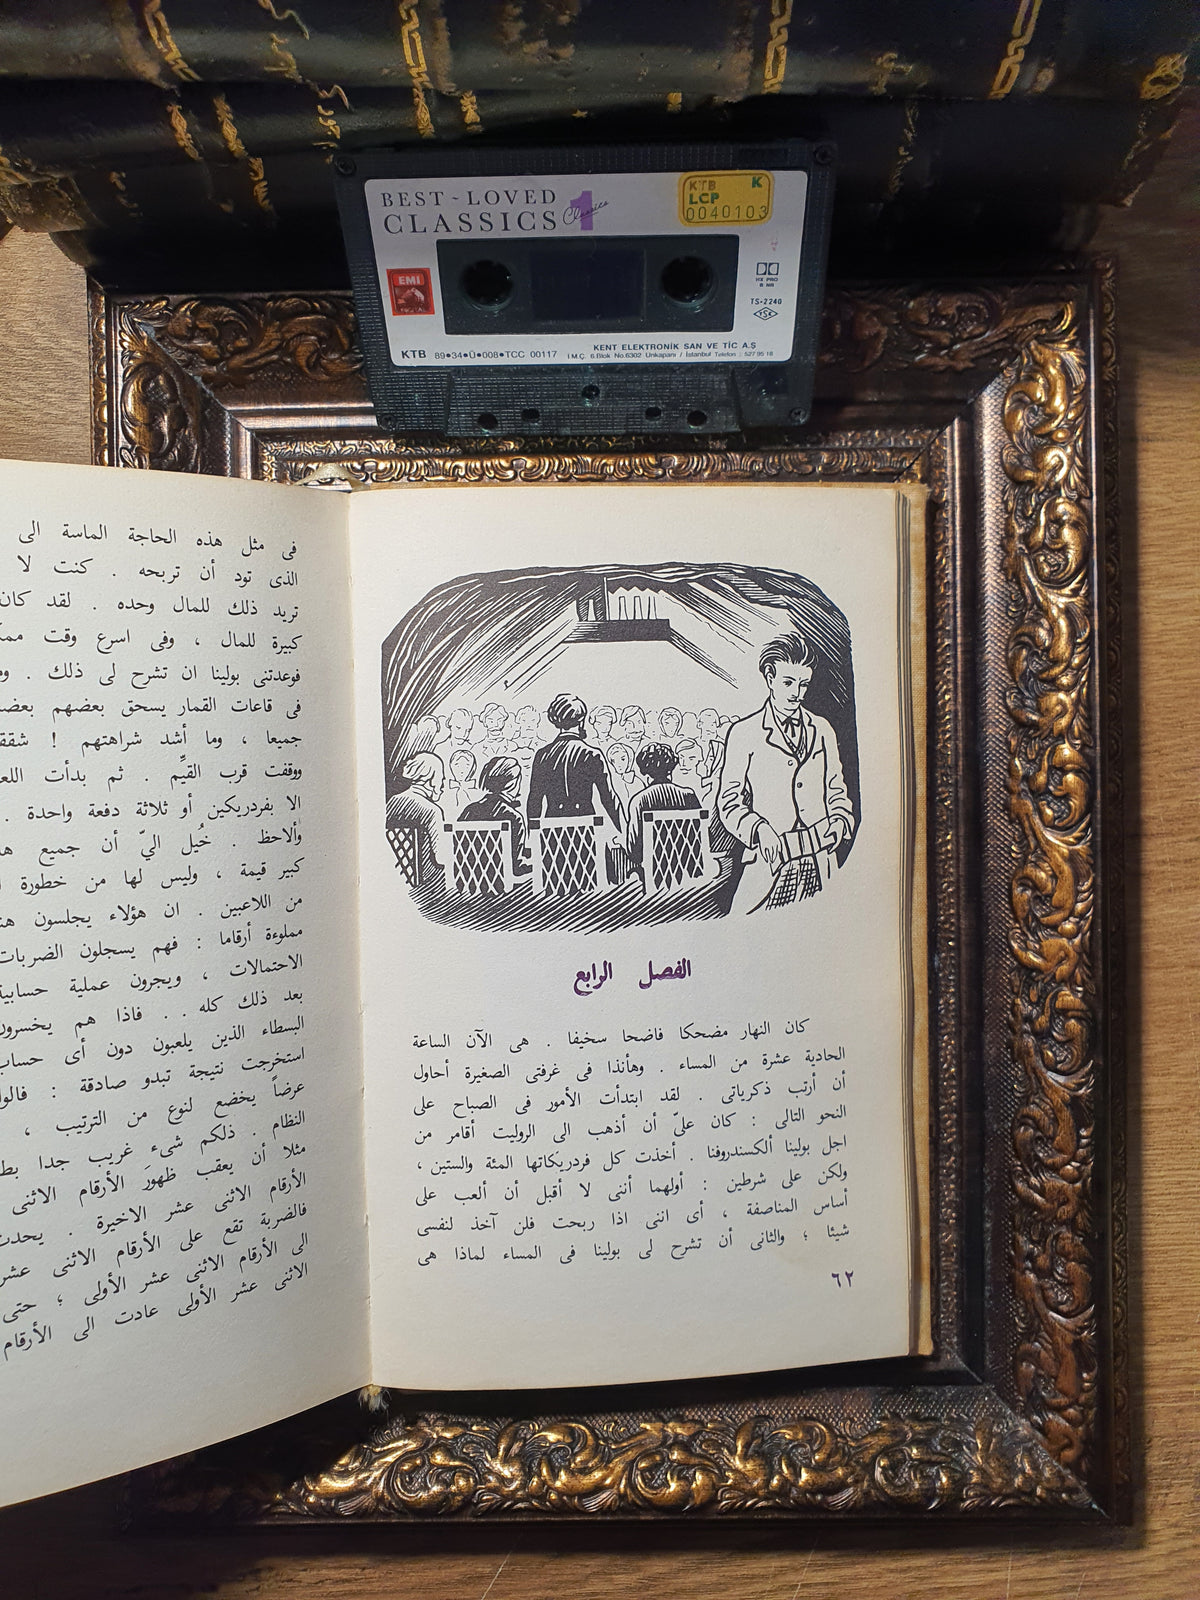 BEST~LOVED
CLASSICS 1
Classics
KTB K
LCP
0040103
EMI
DIGITAL
HX PRO
B NR
TS-2240
TSE
KTB 89•34•Ü•008•TCC 00117
KENT ELEKTRONİK SAN VE TİC A.Ş
İ.M.Ç. 6.Blok No.6302 Unkapanı / İstanbul Telefon : 527 95 18
الفصل الرابع
كان النهار مضحكا فاضحا سخيفا . هى الآن الساعة
الحادية عشرة من المساء . وهأنذا فى غرفتى الصغيرة أحاول
أن أرتب ذكرياتى . لقد ابتدأت الأمور فى الصباح على
النحو التالى : كان علىّ أن أذهب الى الروليت أقامر من
اجل بولينا ألكسندروفنا . أخذت كل فردريكاتها المئة والستين ،
ولكن على شرطين : أولهما أننى لا أقبل أن ألعب على
أساس المناصفة ، أى اننى اذا ربحت فلن آخذ لنفسى
شيئا ؛ والثانى أن تشرح لى بولينا فى المساء لماذا هى
٦٢
فى مثل هذه الحاجة الماسة الى
الذى تود أن تربحه . كنت لا
تريد ذلك للمال وحده . لقد كان
كبيرة للمال ، وفى اسرع وقت
فوعدتنى بولينا ان تشرح لى ذلك .
فى قاعات القمار يسحق بعضهم
جميعا ، وما أشد شراهتهم !
ووقفت قرب القيِّم . ثم بدأت
الا بفردريكين أو ثلاثة دفعة واحدة .
وألاحظ . خُيل اليّ أن جميع
كبير قيمة ، وليس لها من خطورة
من اللاعبين . ان هؤلاء يجلسون
مملوءة أرقاما : فهم يسجلون الضربات
الاحتمالات ، ويجرون عملية حسابية
بعد ذلك كله . . فاذا هم يخسرون
البسطاء الذين يلعبون دون أى حساب
استخرجت نتيجة تبدو صادقة :
عرضاً يخضع لنوع من الترتيب ،
النظام . ذلكم شىء غريب جدا
مثلا أن يعقب ظهورَ الأرقام الاثنى
الأرقام الاثنى عشر الاخيرة .
فالضربة تقع على الأرقام الاثنى عشر
الى الأرقام الاثنى عشر الأولى ؛ حتى
الاثنى عشر الأولى عادت الى الأرقام